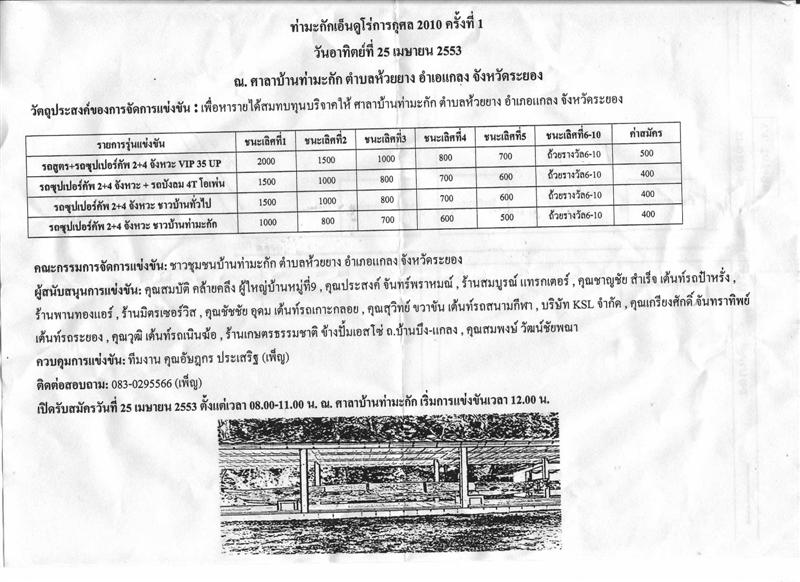 ท่ามะกักเอ็นดูโร่การกุศล 2010 ครั้งที่ 1
วันอาทิตย์ที่ 25 เมษายน 2553
ณ. ศาลาบ้านท่ามะกัก ตำบลห้วยยาง อำเอแกลง จังหวัดระยอง
วัตถุประสงค์ของการจัดการแข่งขัน : เพื่อหารายได้สมทบทุนบริจาคให้ ศาลาบ้านท่ามะกัก ตำบลห้วยยาง อำเภอแกลง จังหวัดระยอง
รายการรุ่นแข่งขัน ชนะเลิศที่1 ชนะเลิศที่2 ชนะเลิศที่3 ชนะเลิศที่4 ชนะเลิศที่5 ชนะเลิศที่6-10 ค่าสมัคร
รถสูตร+รถซุปเปอร์คัพ 2+4 จังหวะ VIP 35 UP 2000 1500 1000 800 700 ถ้วยรางวัล6-10 500
รถซุปเปอร์คัพ 2+4 จังหวะ + รถบังลม 4T โอเพ่น 1500 1000 800 700 600 ถ้วยรางวัล6-10 400
รถซุปเปอร์คัพ 2+4 จังหวะ ชาวบ้านทั่วไป 1500 1000 800 700 600 ถ้วยรางวัล6-10 400
รถซุปเปอร์คัพ 2+4 จังหวะ ชาวบ้านท่ามะกัก 1000 800 700 600 500 ถ้วยรางวัล6-10 400
คณะกรรมการจัดการแข่งขัน: ชาวชุมชนบ้านท่ามะกัก ตำบลห้วยยาง อำเภอแกลง จังหวัดระยอง
ผู้สนับสนุนการแข่งขัน: คุณสมบัติ คล้ายคลึง ผู้ใหญ่บ้านหมู่ที่9 , คุณประสงค์ จันทร์พราหมณ์ , ร้านสมบูรณ์ แทรกเตอร์ , คุณชาญชัย สำเร็จ เต้นท์รถป้าหรั่ง ,
ร้านพานทองแอร์ , ร้านมิตรเซอร์วิส , คุณชัชชัย อุดม เต้นท์รถเกาะกลอย , คุณสุวิทย์ ขวาขัน เต้นท์รถสนามกีฬา , บริษัท KSL จำกัด , คุณเกรียงศักดิ์ จันทราทิพย์
เต้นท์รถระยอง , คุณวุฒิ เต้นท์รถเนินฆ้อ , ร้านเกษตรธรรมชาติ ข้างปั้มเอสโซ่ ถ.บ้านบึง-แกลง , คุณสมพงษ์ วัฒน์ชัยพณา
ควบคุมการแข่งขัน: ทีมงาน คุณอัษฎกร ประเสริฐ (เพ็ญ)
ติดต่อสอบถาม: 083-0295566 (เพ็ญ)
เปิดรับสมัครวันที่ 25 เมษายน 2553 ตั้งแต่เวลา 08.00-11.00 น. ณ. ศาลาบ้านท่ามะกัก เริ่มการแข่งขันเวลา 12.00 น.